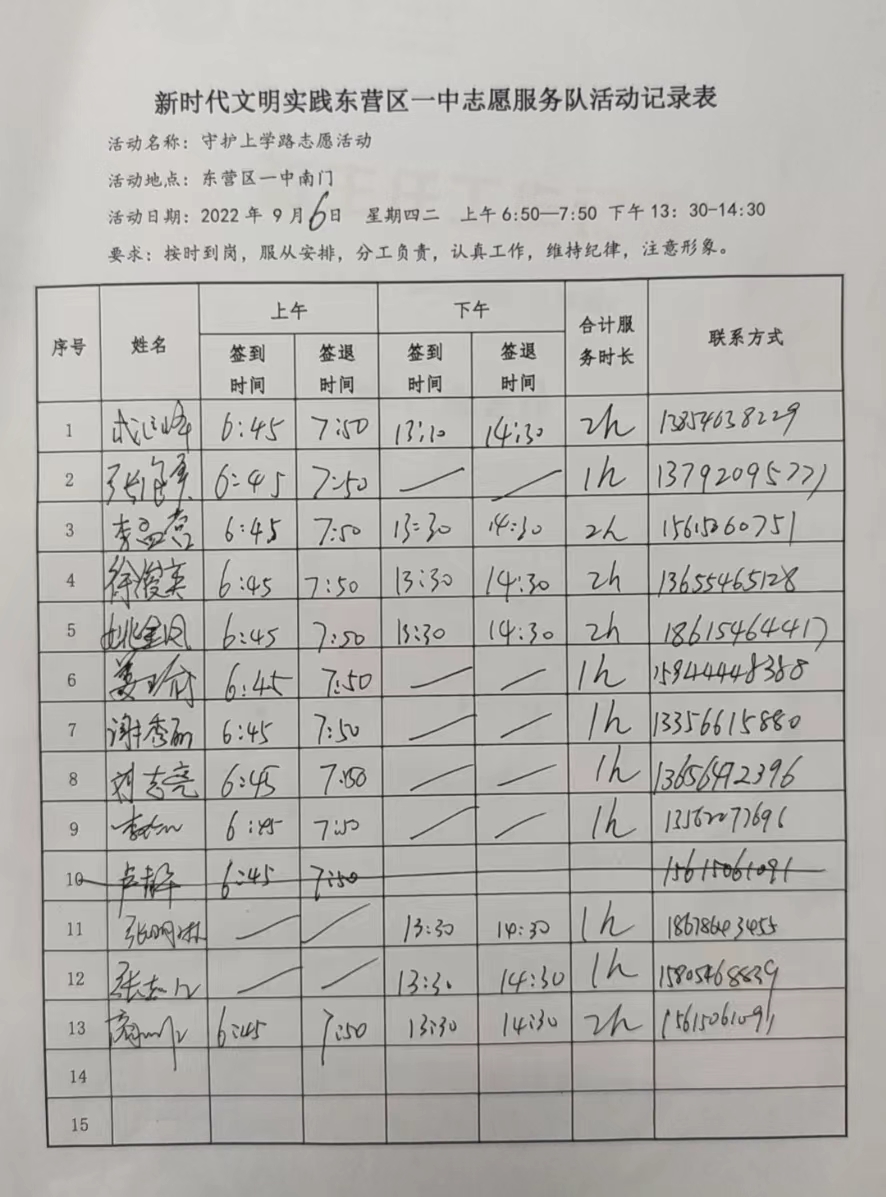 新时代文明实践东营区一中志愿服务队活动记录表
活动名称：守护上学路志愿活动
活动地点：东营区一中南门
活动日期：2022年 9月6日 星期四二 上午6:50—7:50 下午13：30-14:30
要求：按时到岗，服从安排，分工负责，认真工作，维持纪律，注意形象。
序号 姓名 上午 下午 合计服务时长 联系方式
签到时间 签退时间 签到时间 签退时间
1 6:45 7:50 13:10 14:30 2h 13854638229
2 6:45 7:50 — — 1h 13792095771
3 李孟亮 6:45 7:50 13:30 14:30 2h 15615260751
4 徐俊英 6:45 7:50 13:30 14:30 2h 13655465128
5 姚金凤 6:45 7:50 13:30 14:30 2h 18615464417
6 6:45 7:50 — — 1h 15944448388
7 谢秀丽 6:45 7:50 — — 1h 13356615880
8 刘志亮 6:45 7:50 — — 1h 13656492396
9 6:45 7:50 — — 1h 13562077696
10 卢静 6:45 7:50 15615061091
11 张明琳 — — 13:30 14:30 1h 18678643455
12 — — 13:30 14:30 1h 15805468839
13 6:45 7:50 13:30 14:30 2h 15615061091
14
15